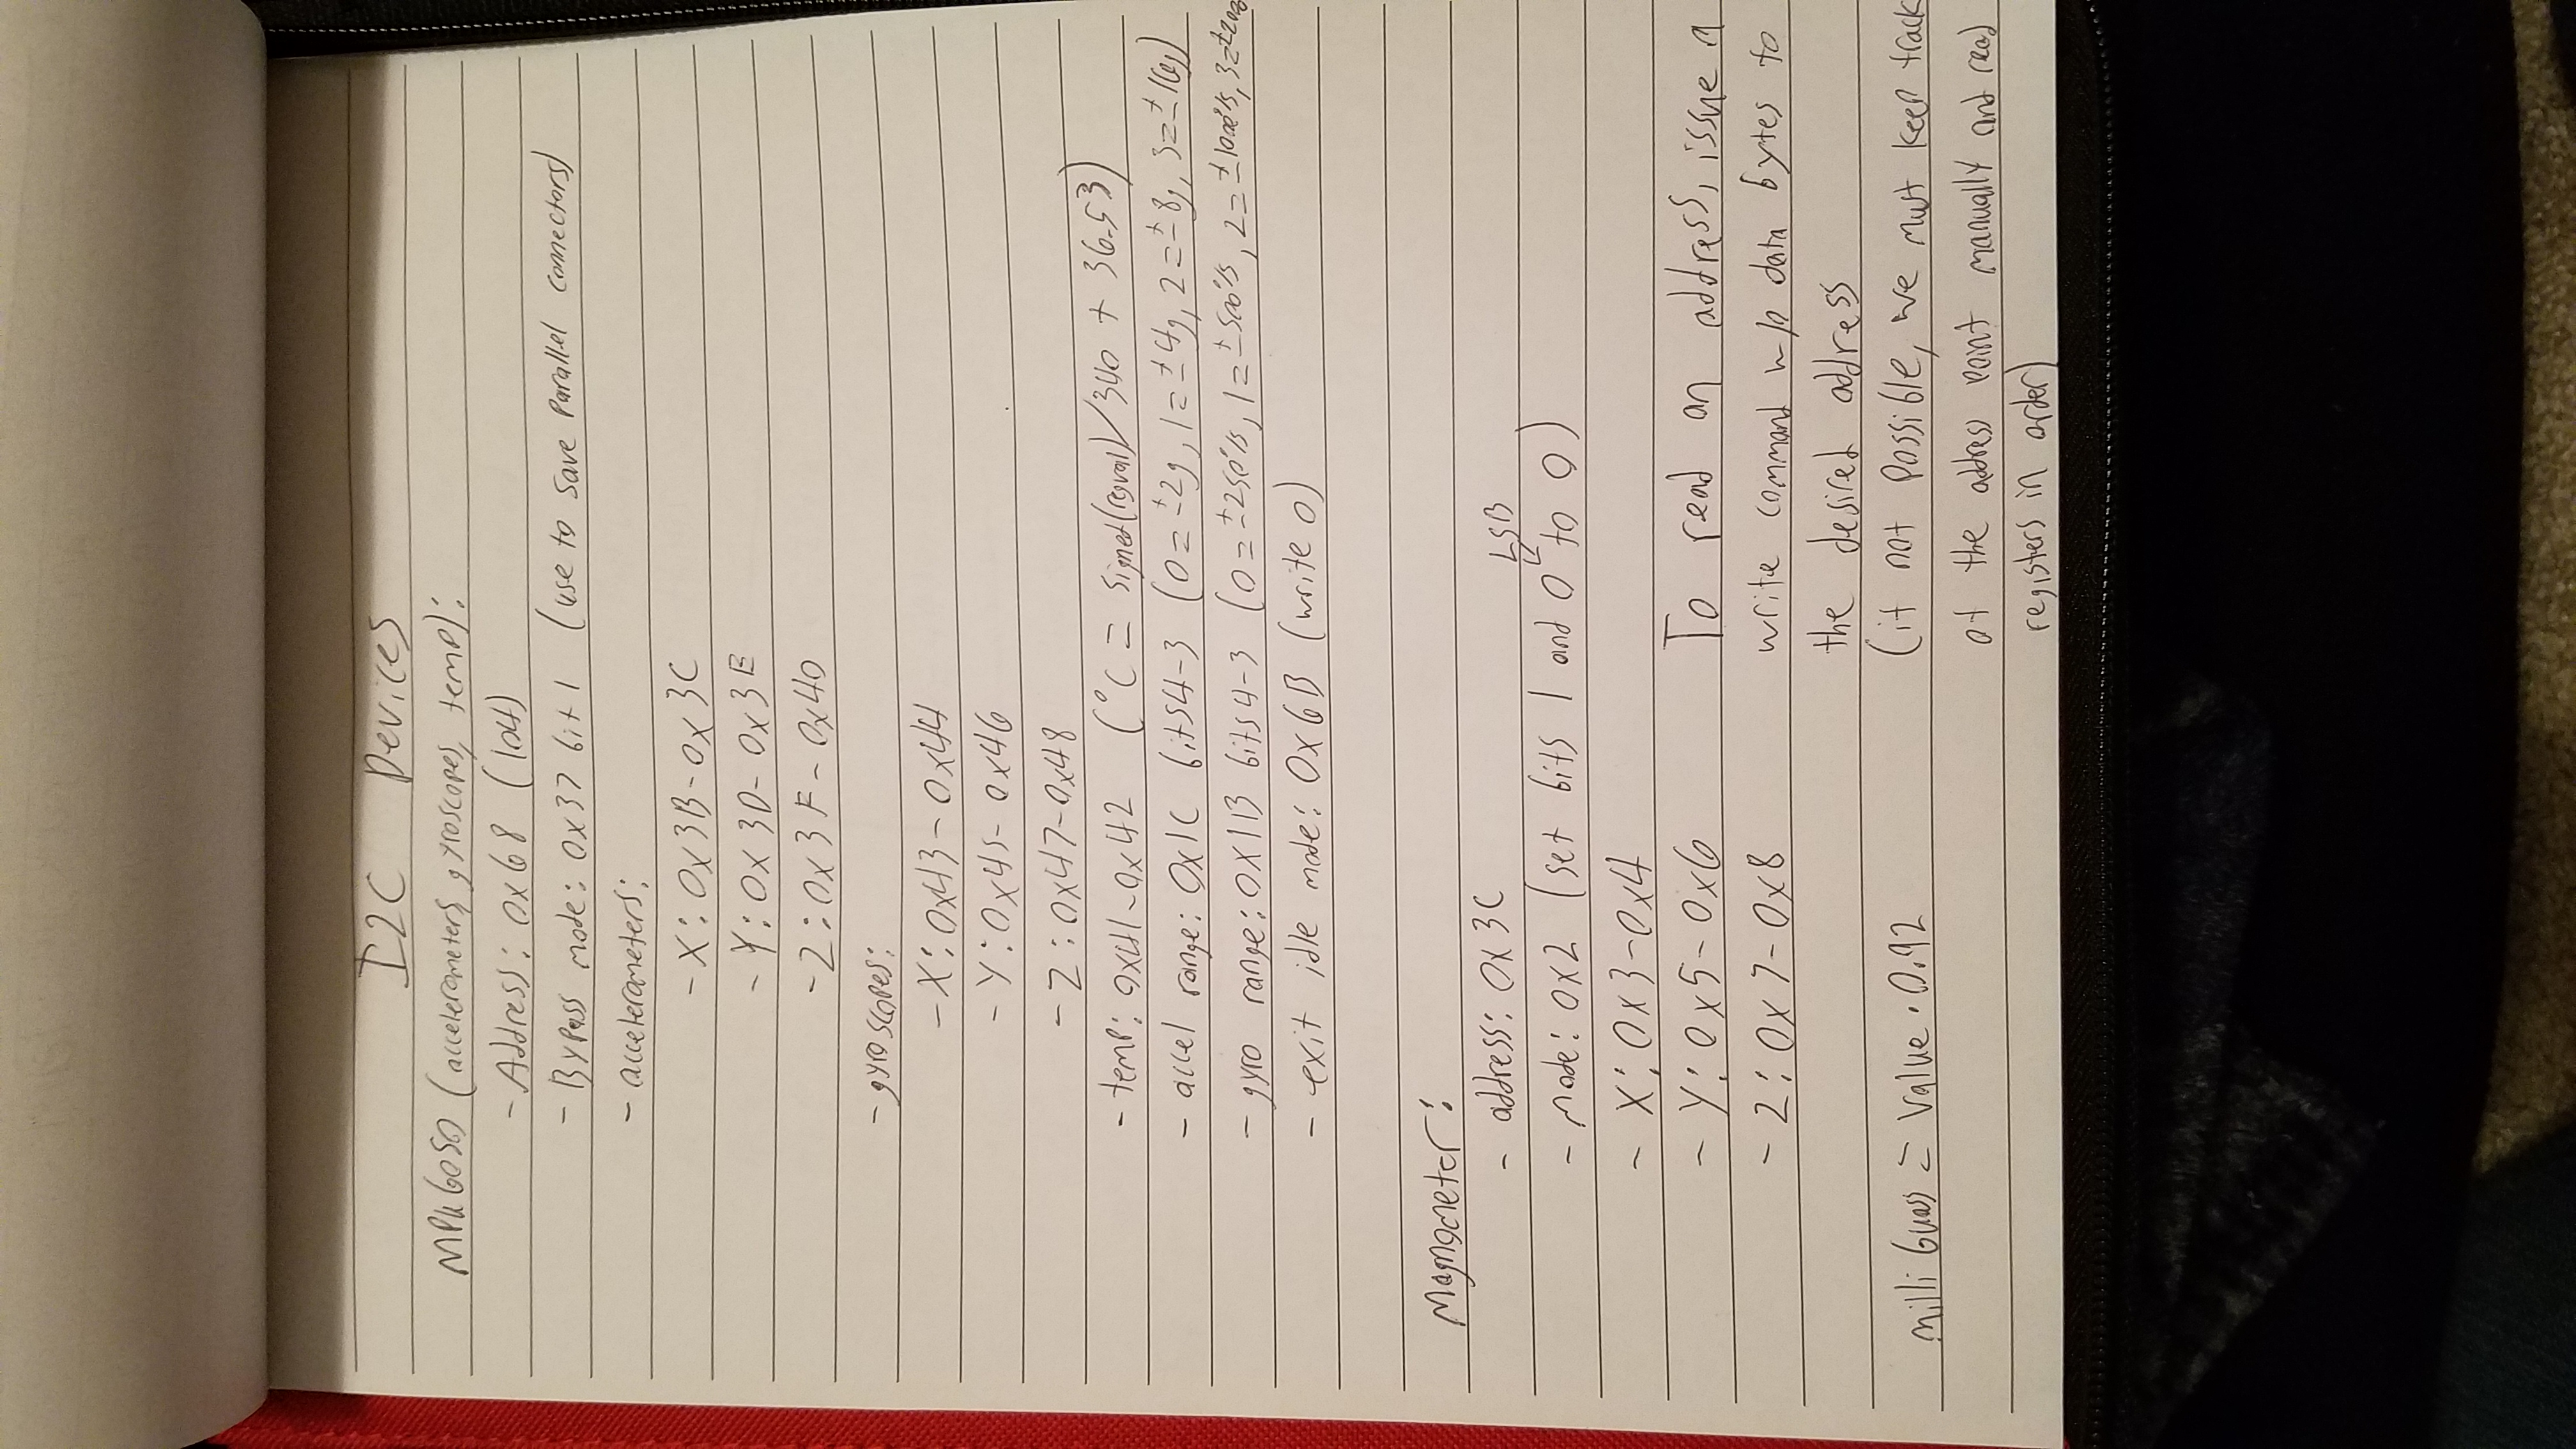 I2C Devices
MPU6050 (accelerometers, gyroscopes, temp):
- Address: 0x68 (104)
- Bypass mode: 0x37 bit 1 (use to save parallel connectors)
- accelerometers:
- X: 0x3B - 0x3C
- Y: 0x3D - 0x3E
- Z: 0x3F - 0x40
- gyroscopes:
- X: 0x43 - 0x44
- Y: 0x45 - 0x46
- Z: 0x47 - 0x48
- temp: 0x41 - 0x42 (°C = signed(regval)/340 + 36.53)
- accel range: 0x1C bits 4-3 (0=±2g, 1=±4g, 2=±8g, 3=±16g)
- gyro range: 0x1B bits 4-3 (0=±250°/s, 1=±500°/s, 2=±1000°/s, 3=±2000
- exit idle mode: 0x6B (write 0)
Magnometer:
- address: 0x3C
LSB
- Mode: 0x2 (set bits 1 and 0 to 0)
- X: 0x3 - 0x4
- Y: 0x5 - 0x6
- Z: 0x7 - 0x8
milli Guass = Value · 0.92
To read an address, issue a
write command w/o data bytes to
the desired address
(if not possible, we must keep track
of the address point manually and read
registers in order)